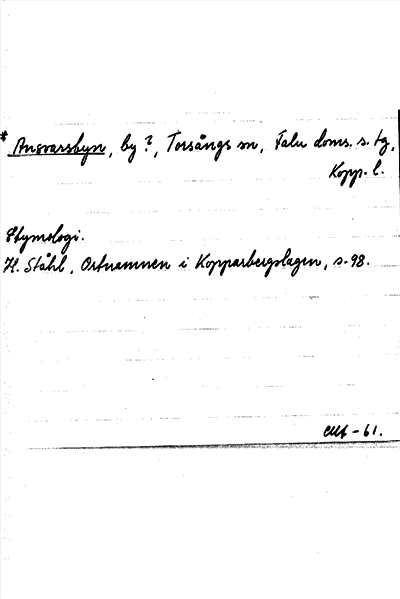 * Ansvarsbyn, by ?, Torsångs sn, Falu doms. s. tg,
Kopp. l.
Etymologi.
H. Ståhl, Ortnamnen i Kopparbergslagen, s. 98.
-61.